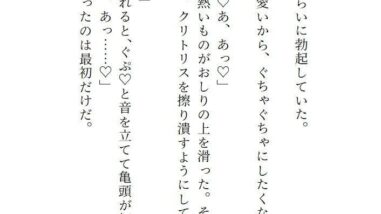 らいに勃起していた。
愛いから、ぐちゃぐちゃにしたくな
♡あ、あっ♡」
熱いものがおしりの上を滑った。そ
クリトリスを擦り潰すようにして
」
れると、ぐぷ♡と音を立てて亀頭が
あっ……♡」
ったのは最初だけだ。